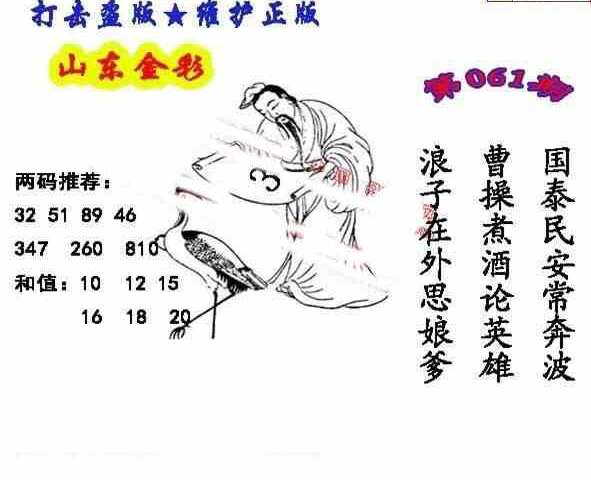 打击盗版★维护正版
山东金彩
第061期
两码推荐：
32 51 89 46
347 260 810
和值：10 12 15
16 18 20
3
国泰民安常奔波
曹操煮酒论英雄
浪子在外思娘爹